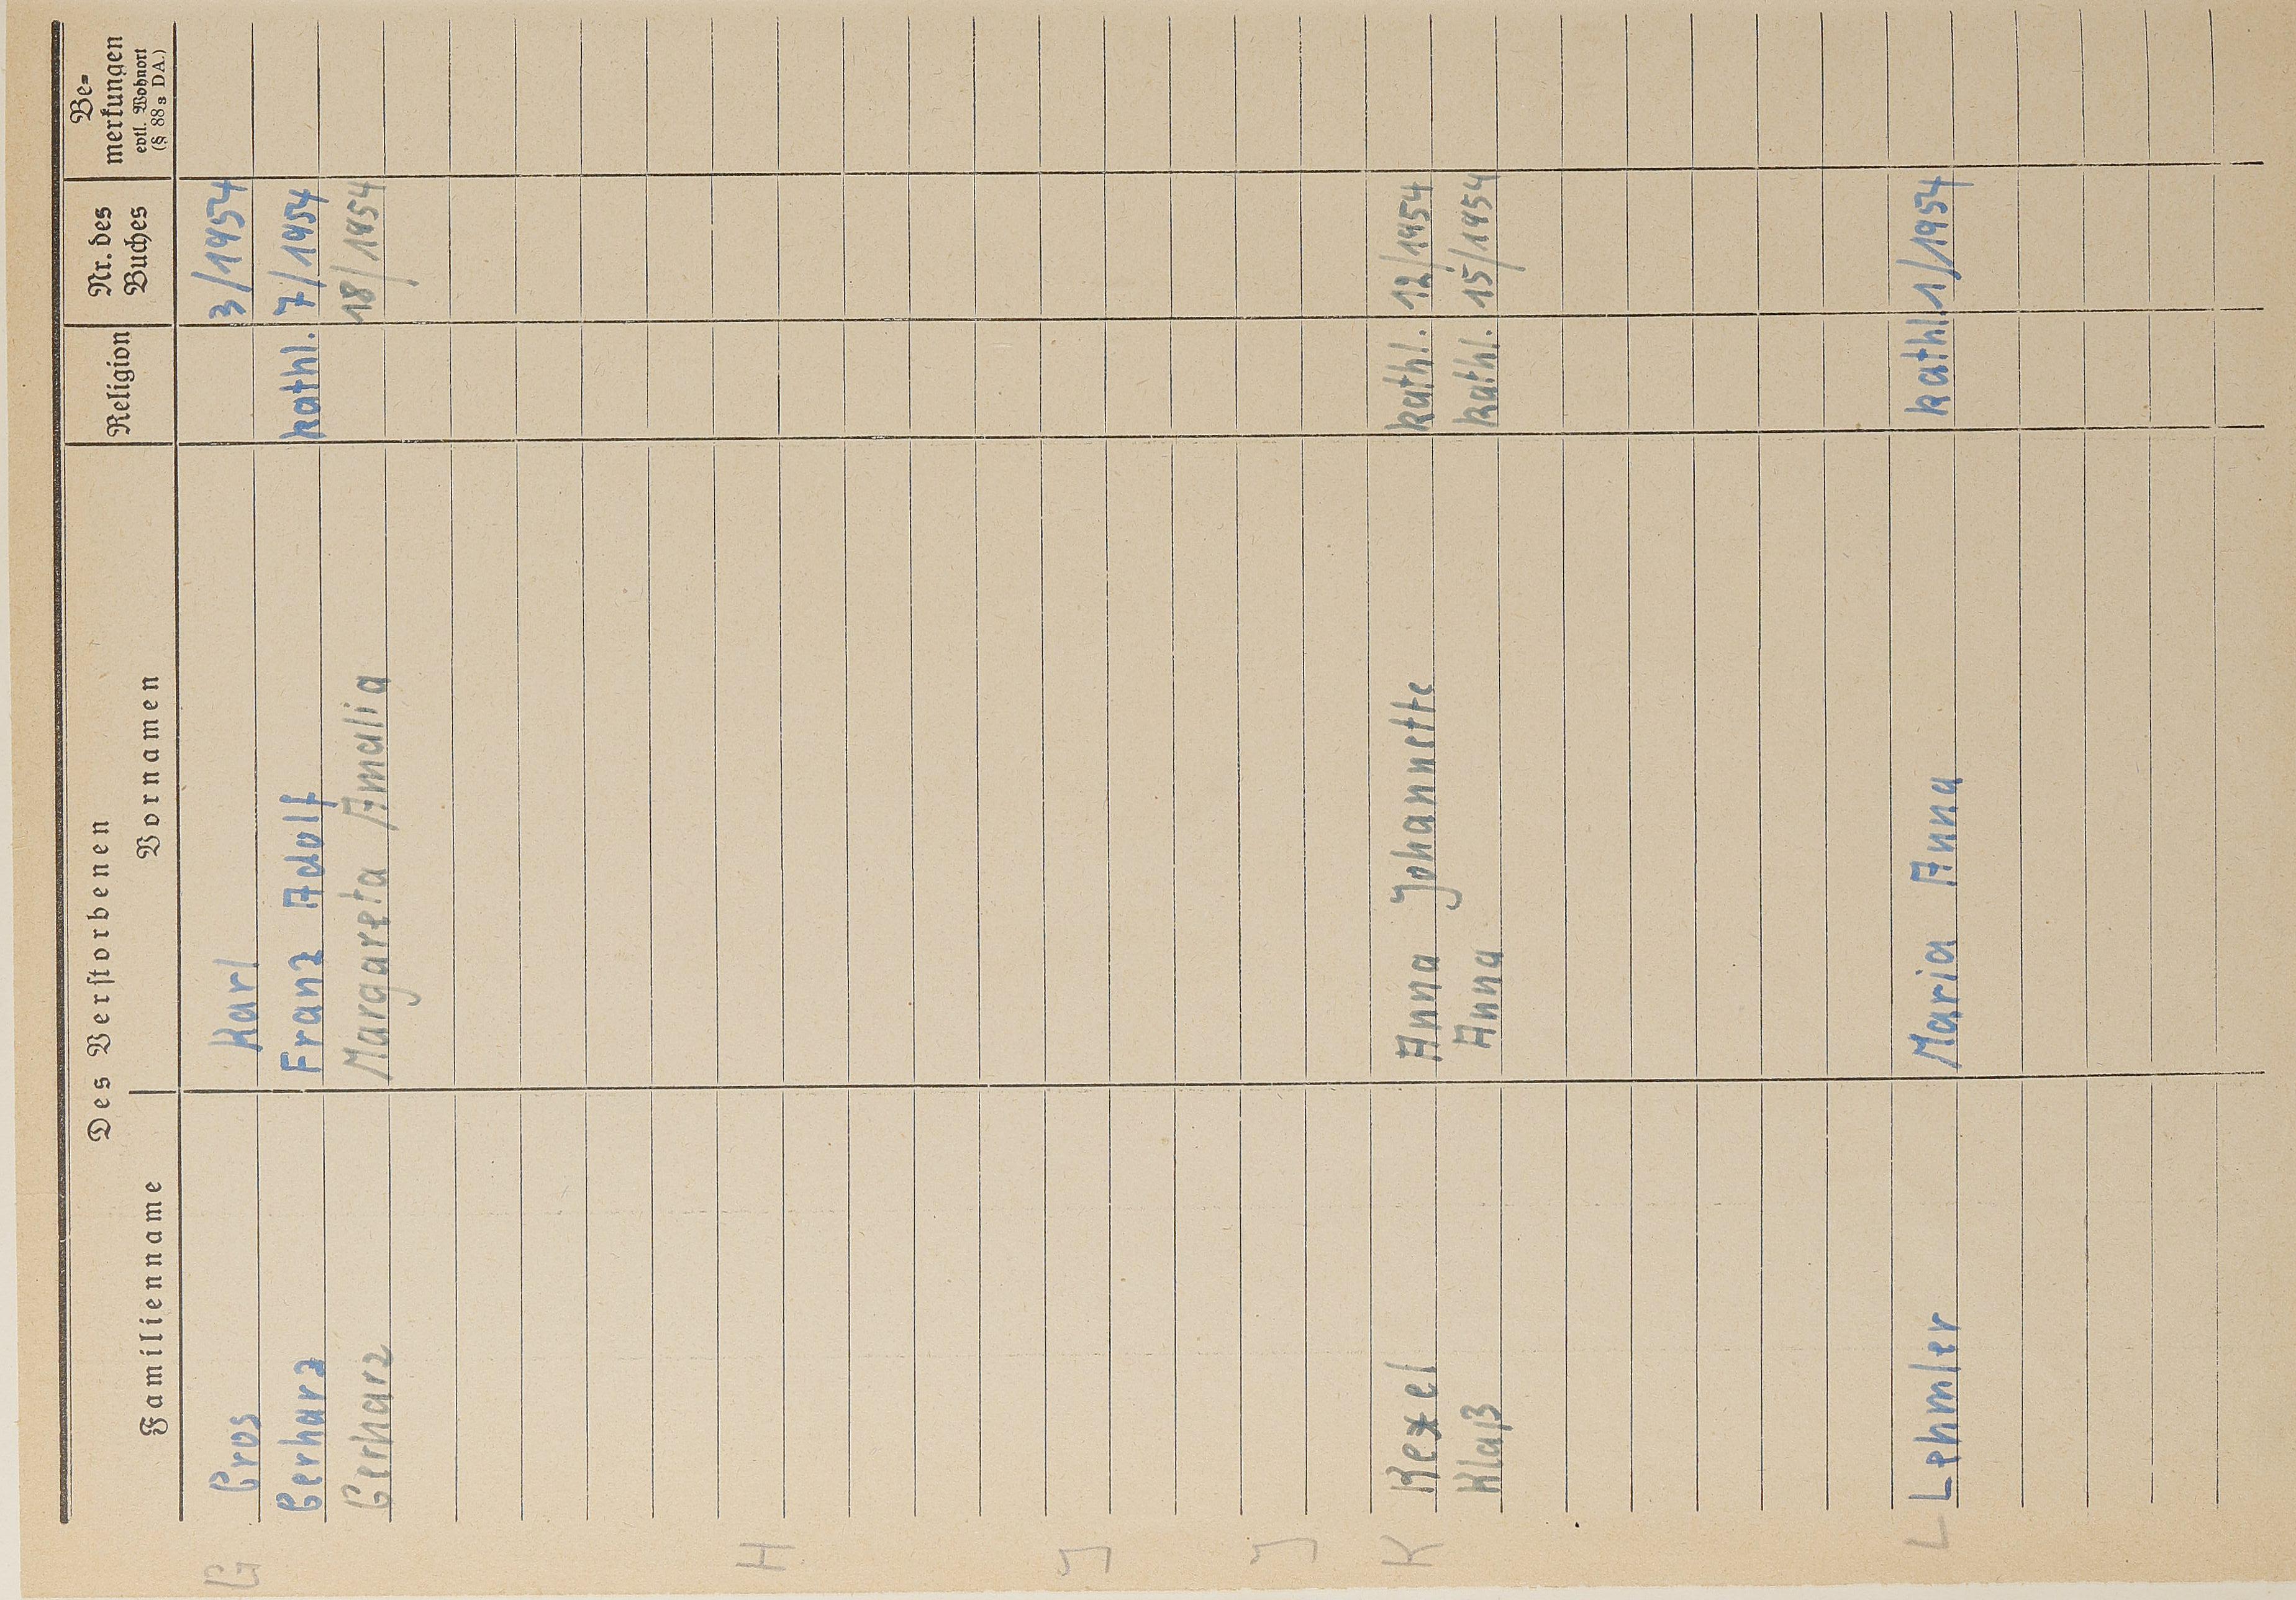 Des Verstorbenen
Familienname Vornamen Religion Nr. des Buches Be-merkungen evtl. Wohnort (§ 88 s DA.)
G Gros Karl 3/1954
Gerharz Franz Adolf kathl. 7/1954
Gerharz Margareta Amalia 18/1954
H
J
J
K Kexel Anna Johannette kathl. 12/1954
Klaß Anna kathl. 15/1954
L Lehmler Maria Anna kathl. 1/1954